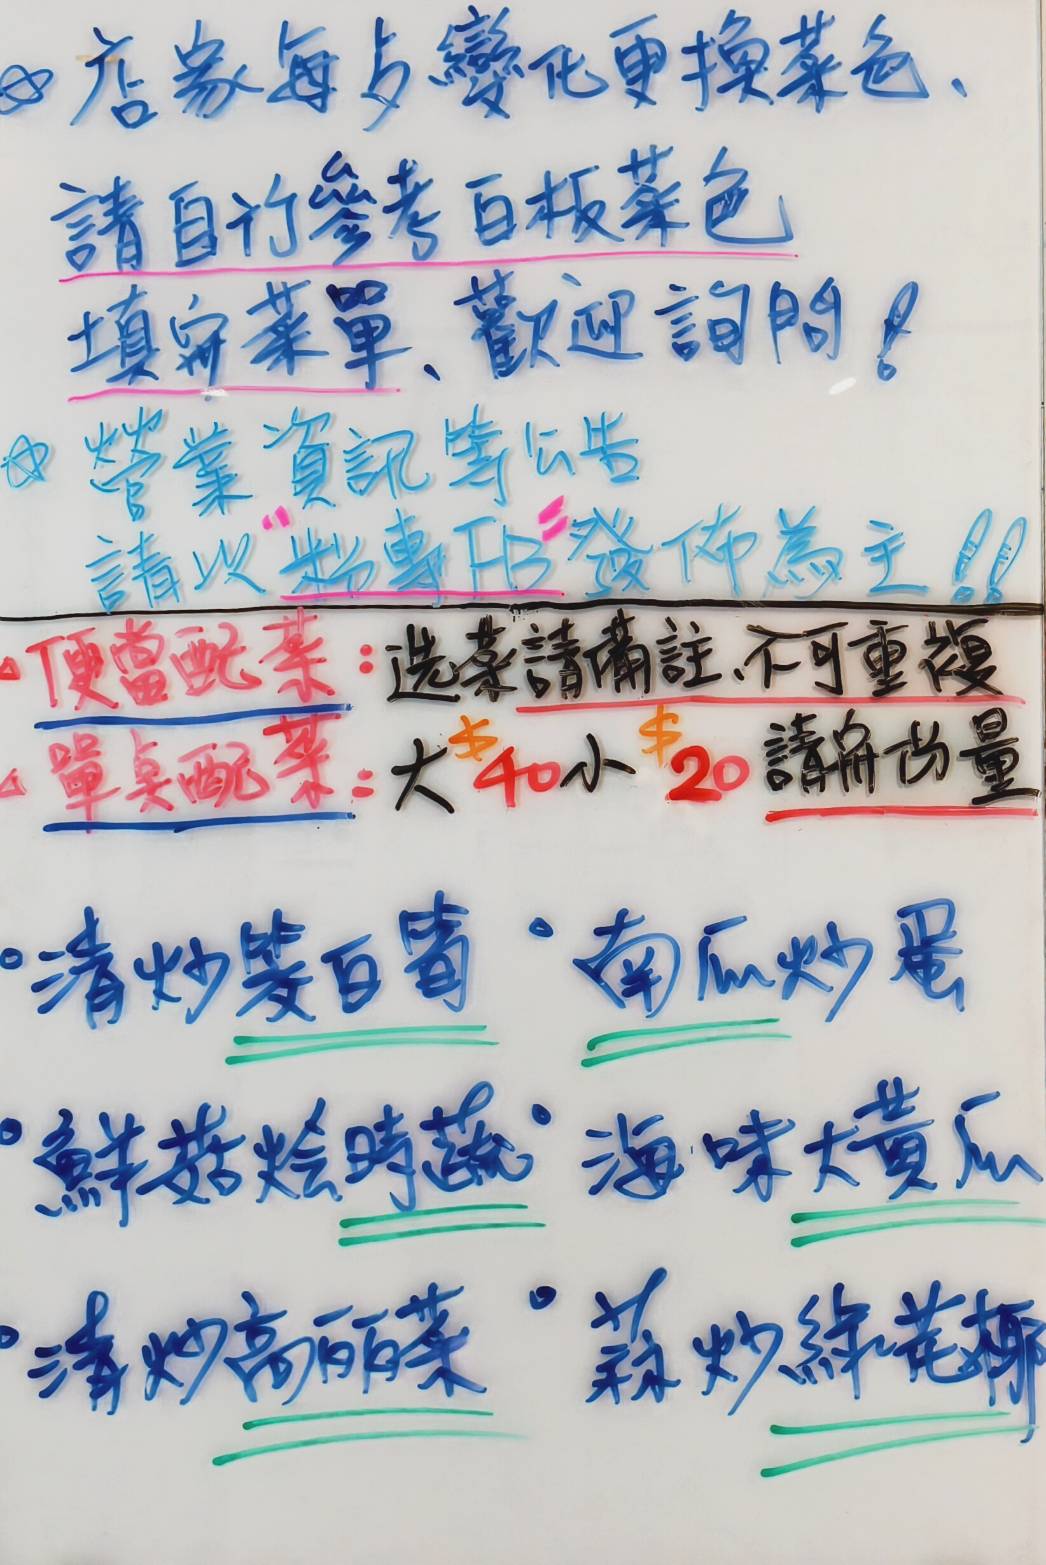 ☆ 店家每占變化更換菜色、
請自行參考白板菜色
填寫菜單、歡迎詢問!
☆ 營業資訊等公告
請以"粉專FB"發佈為主!!
△便當配菜:選菜請備註、不可重複
△單点配菜:大$40小$20請寫份量
•清炒茭白筍 •南瓜炒蛋
•鮮菇燴時蔬 •海味大黃瓜
•清炒高丽菜 •蒜炒綠花椰